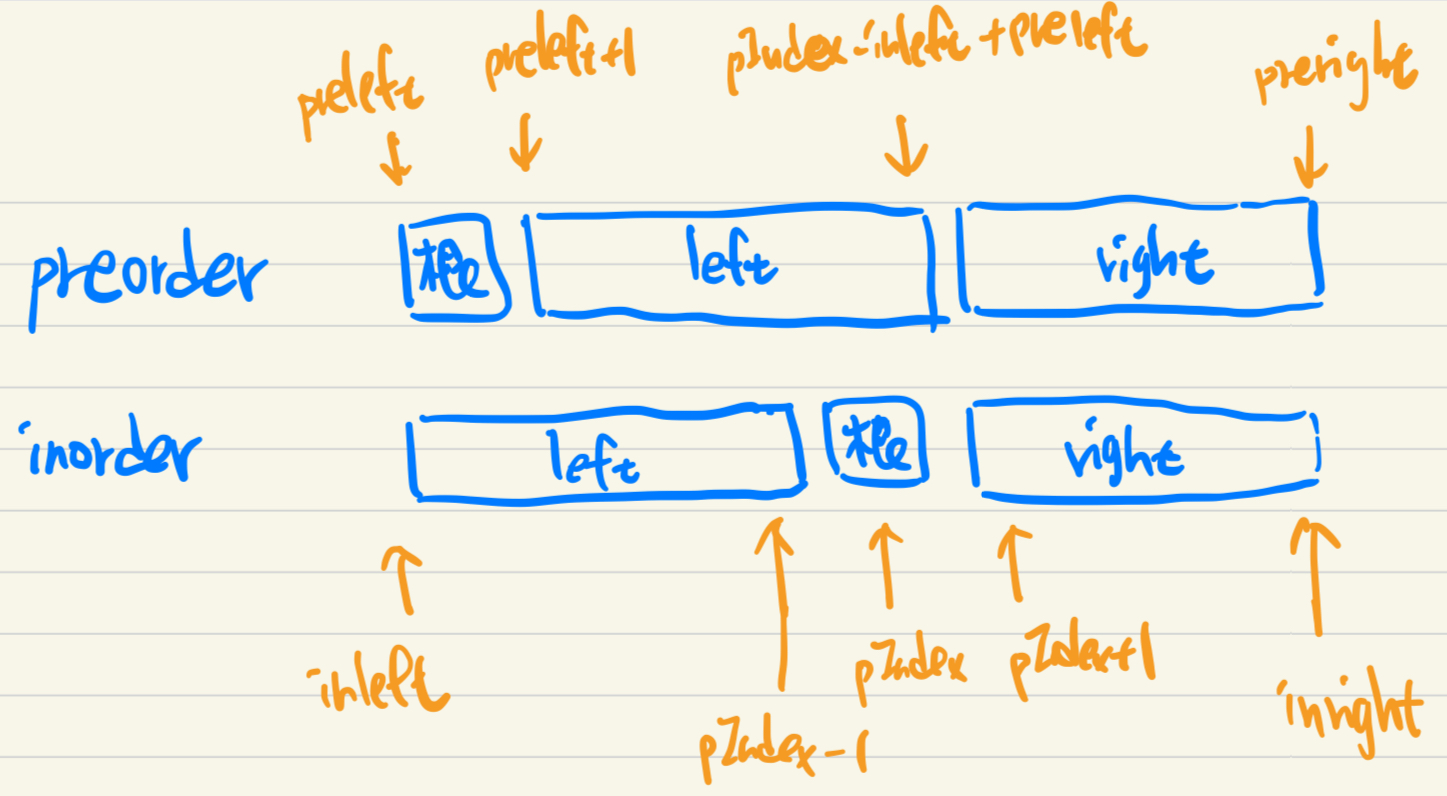 preleft
preleft+1
pIndex-inleft+preleft
preright
preorder
根
left
right
inorder
left
根
right
inleft
pIndex-1
pIndex
pIndex+1
inright